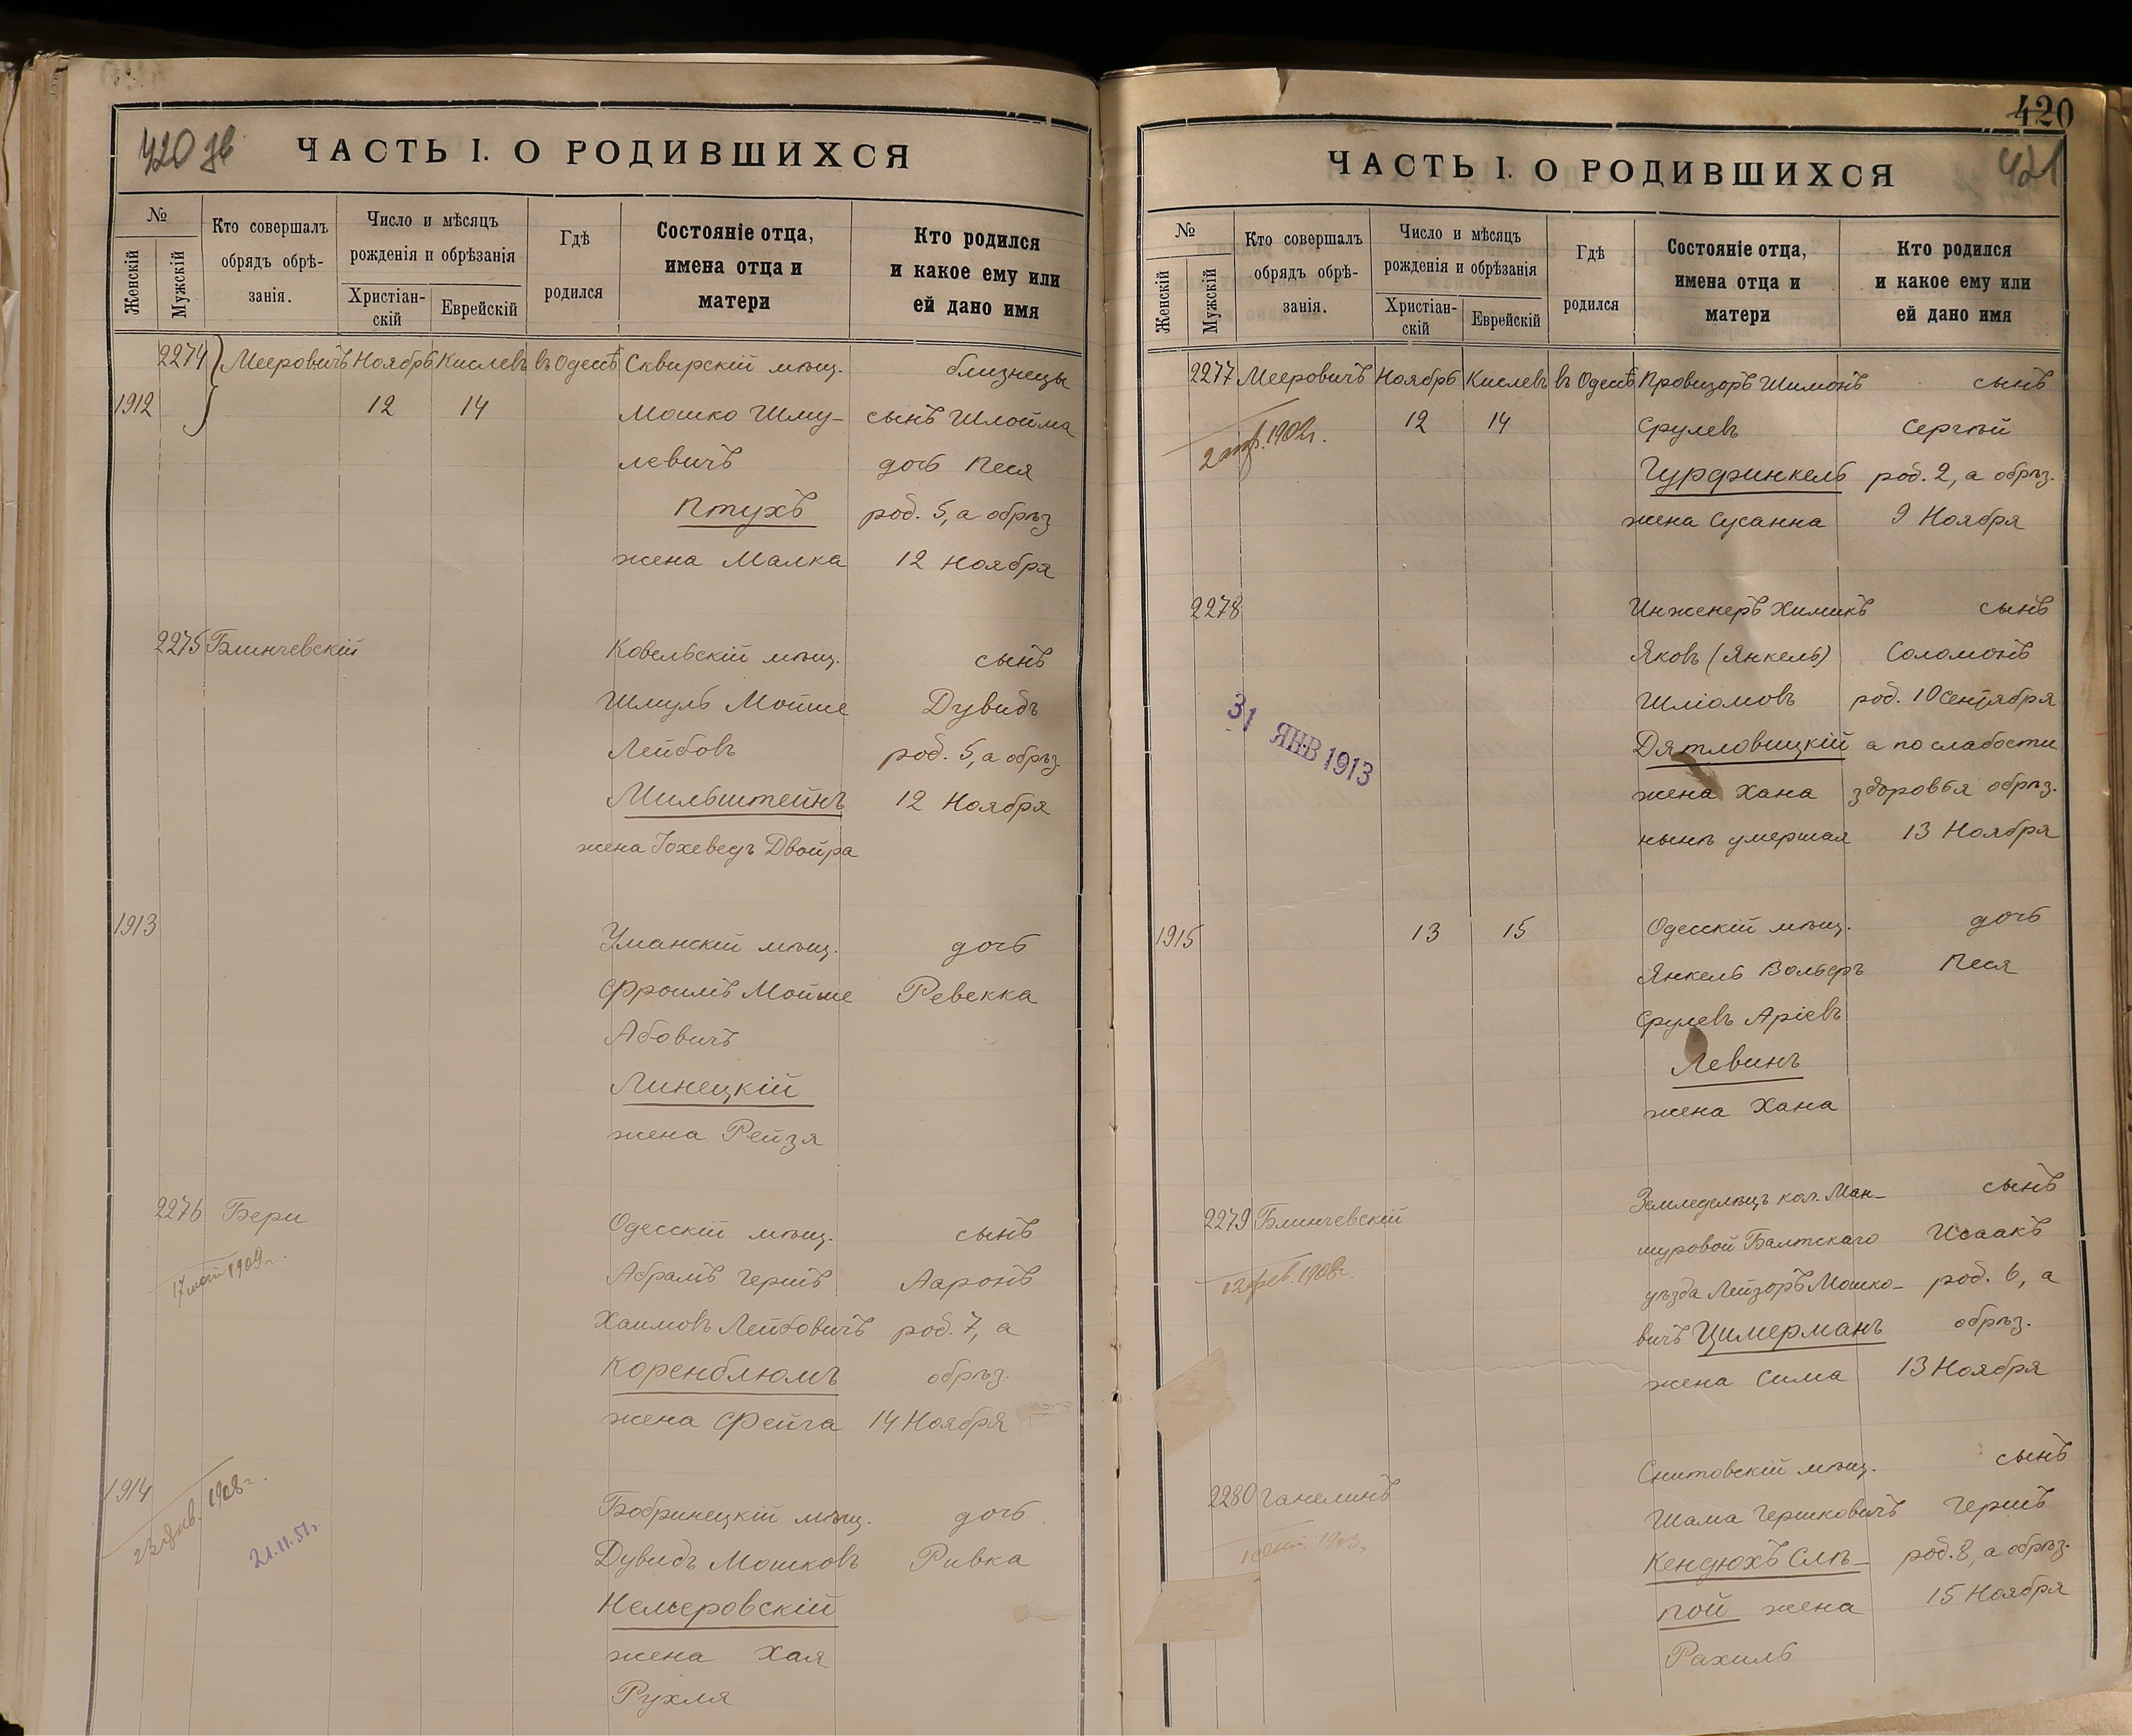 420 зв
ЧАСТЬ I. О РОДИВШИХСЯ
№
Женскій
Мужскій
Кто совершалъ
обрядъ обрѣ-
занія.
Число и мѣсяцъ
рожденія и обрѣзанія
Христіан-
скій
Еврейскій
Гдѣ
родился
Состояніе отца,
имена отца и
матери
Кто родился
и какое ему или
ей дано имя
2274 Мееровичъ Ноябрь Кислевъ въ Одессѣ Сквирскій мѣщ. близнецы
1912 12 14 Мошко Шму- сынъ Шлойма
левичъ дочь Песя
Птухъ род. 5, а обрѣз
жена Малка 12 Ноября
2275 Блинчевскій Ковельскій мѣщ. сынъ
Шмуль Мойше Дувидъ
Лейбовъ род. 5, а обрѣз.
Мильштейнъ 12 Ноября
жена Іохеведъ Двойра
1913 Уманскій мѣщ. дочь
Фроимъ Мойше Ревекка
Абовичъ
Линецкій
жена Рейзя
2276 Бери Одесскій мѣщ. сынъ
17 1909 г. Абрамъ Гершъ Ааронъ
Хаимовъ Лейбовичъ род. 7, а
Коренблюмъ обрѣз.
жена Фейга 14 Ноября
1914 Бобринецкій мѣщ. дочь
23 янв. 1908 г.
21.11.51г.
Дувидъ Мошковъ Ривка
Немеровскій
жена Хая
Рухля
420
421
ЧАСТЬ I. О РОДИВШИХСЯ
№
Женскій
Мужскій
Кто совершалъ
обрядъ обрѣ-
занія.
Число и мѣсяцъ
рожденія и обрѣзанія
Христіан-
скій
Еврейскій
Гдѣ
родился
Состояніе отца,
имена отца и
матери
Кто родился
и какое ему или
ей дано имя
2277 Мееровичъ Ноябрь Кислевъ въ Одессѣ Провизоръ Шимонъ сынъ
12 14 Срулевъ Сергѣй
2 1902г.
Гурфинкель род. 2, а обрѣз.
жена Сусанна 9 Ноября
2278 Инженеръ Химикъ сынъ
Яковъ (Янкель) Соломонъ
Шліомовъ род. 10 Сентября
31 ЯНВ 1913
Дятловицкій а по слабости
жена Хана здоровья обрѣз.
нынѣ умершая 13 Ноября
1915 13 15 Одесскій мѣщ. дочь
Янкель Вольфъ Песя
Срулевъ Аріевъ
Левинъ
жена Хана
2279 Блинчевскій Земледѣлецъ кол. Ман- сынъ
12 фев. 1908г.
муровой Балтскаго Исаакъ
уѣзда Лейзоръ Мошко- род. 6, а
вичъ Цимерманъ обрѣз.
жена Сима 13 Ноября
2280 Ганелинъ Снитовскій мѣщ. сынъ
Шама Гершковичъ Гершъ
Кендюхъ Слѣ- род. 8, а обрѣз.
пой жена 15 Ноября
Рахиль